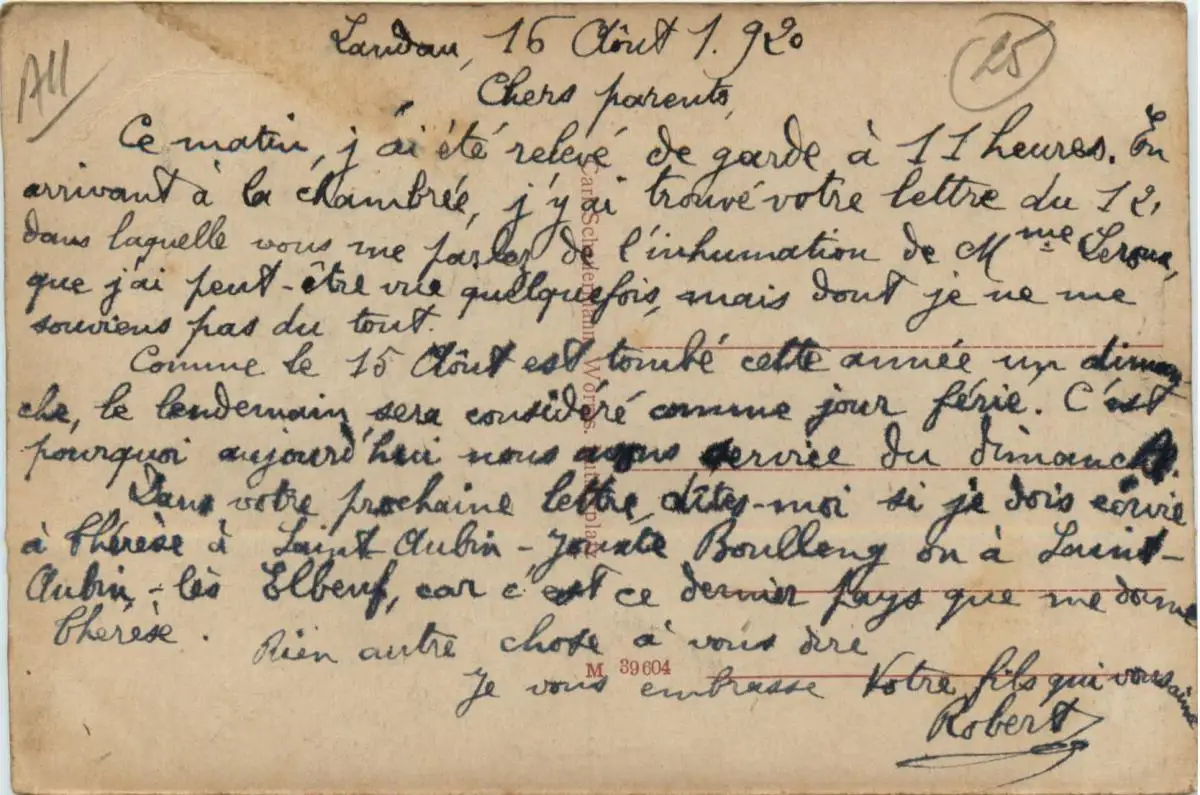 All
25
Landau, 16 Aôut 1.920
Chers parents,
Ce matin, j'ai été relevé de garde à 11 heures. En
arrivant à la chambrée, j'y ai trouvé votre lettre du 12,
dans laquelle vous me parlez de l'inhumation de Mme Leroux,
que j'ai peut-être vue quelquefois, mais dont je ne me
souviens pas du tout.
Comme le 15 Aôut est tombé cette année un diman-
che, le lendemain sera considéré comme jour férié. C'est
pourquoi aujourd'hui nous avons service du dimanche.
Dans votre prochaine lettre, dîtes-moi si je dois écrire
à Thérèse à Saint-Aubin-Jouxte Boulleng ou à Saint-
Aubin-lès Elbeuf, car c'est ce dernier pays que me donne
Thérèse.
Rien autre chose à vous dire
Je vous embrasse Votre fils qui vous aime
Robert
Carl Schedemann, Worms.
M 39604